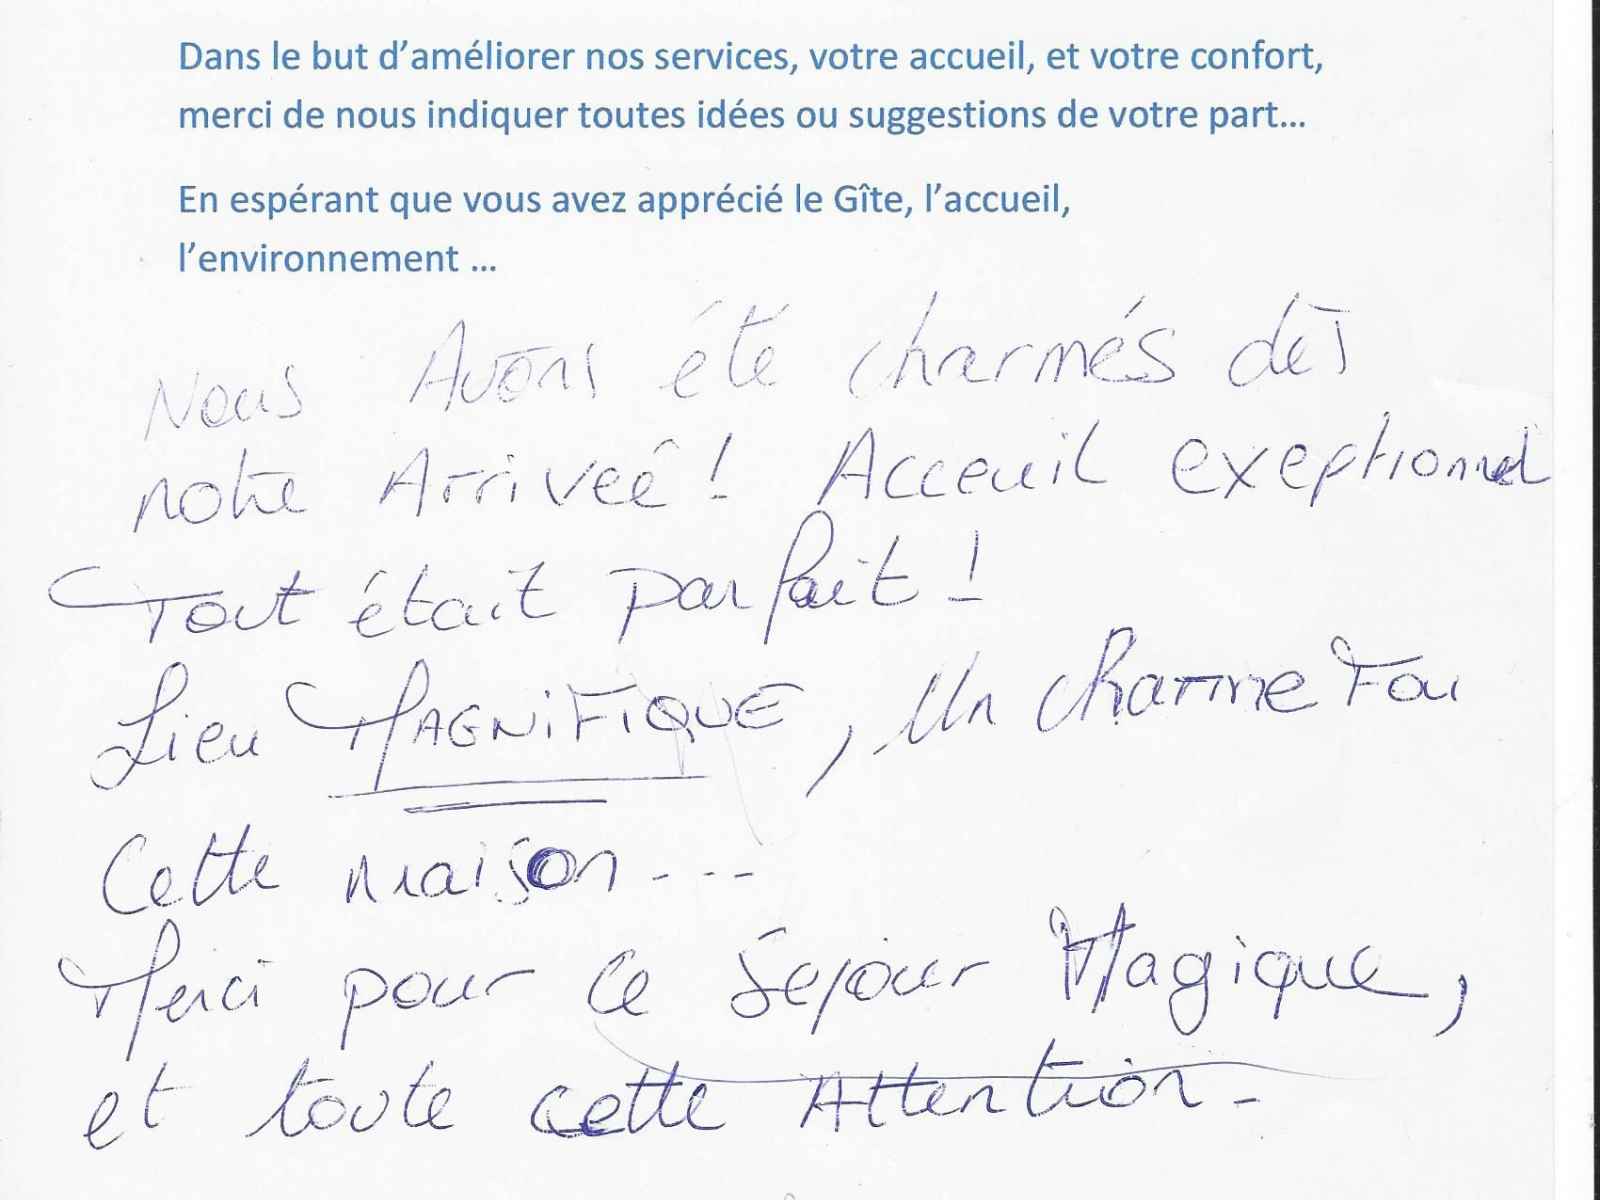 Dans le but d’améliorer nos services, votre accueil, et votre confort,
merci de nous indiquer toutes idées ou suggestions de votre part...
En espérant que vous avez apprécié le Gîte, l’accueil,
l’environnement ...
Nous Avons été charmés dès
notre Arrivée! Acceuil exeptionnel
Tout était parfait!
Lieu MAGNIFIQUE, Un charme Fou
Cette maison ---
Merci pour ce Sejour Magique,
et toute cette Attention.